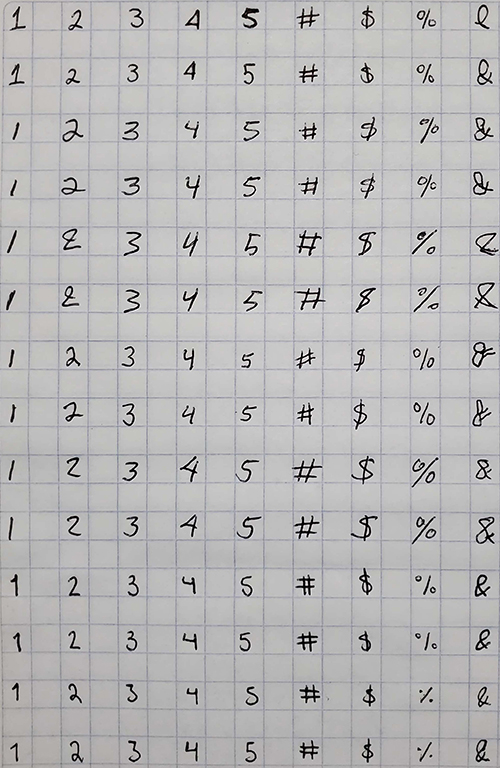 1 2 3 4 5 # $ % &
1 2 3 4 5 # $ % &
1 2 3 4 5 # $ % &
1 2 3 4 5 # $ % &
1 2 3 4 5 # $ % &
1 2 3 4 5 # $ % &
1 2 3 4 5 # $ % &
1 2 3 4 5 # $ % &
1 2 3 4 5 # $ % &
1 2 3 4 5 # $ % &
1 2 3 4 5 # $ % &
1 2 3 4 5 # $ % &
1 2 3 4 5 # $ % &
1 2 3 4 5 # $ % &